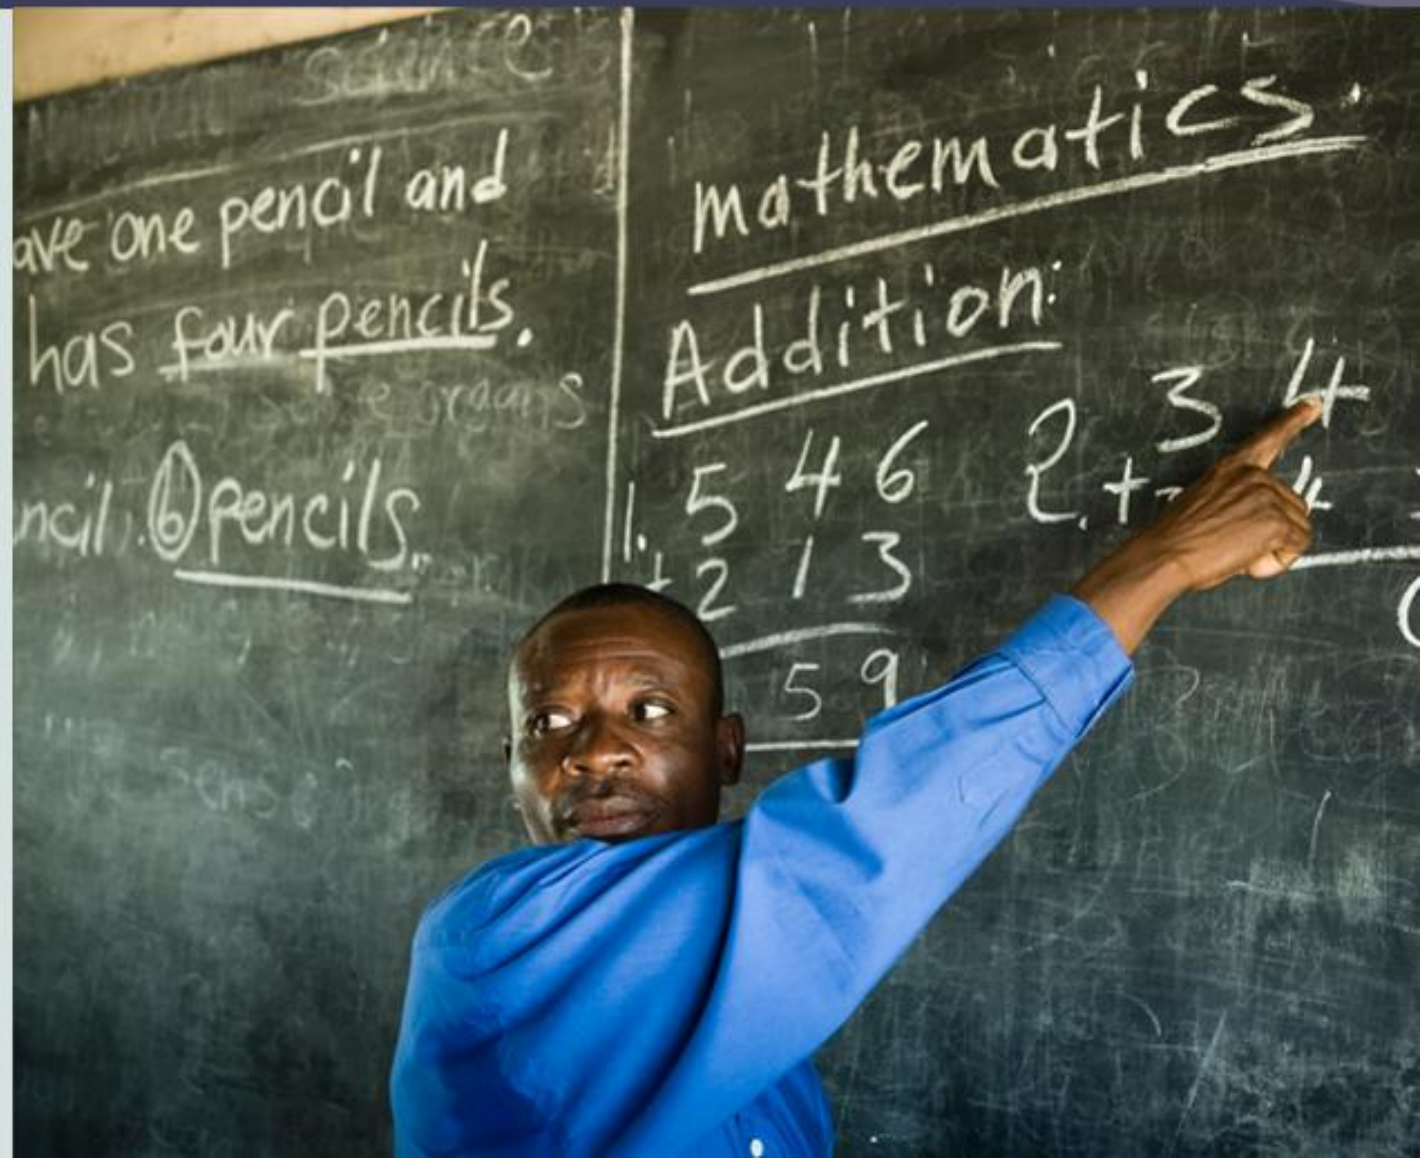 science
ave one pencil and
has four pencils.
organs
ncil. 6 pencils.
mathematics.
Addition:
1. 5 4 6
+ 2 1 3
5 9
2. 3 4
+ 4